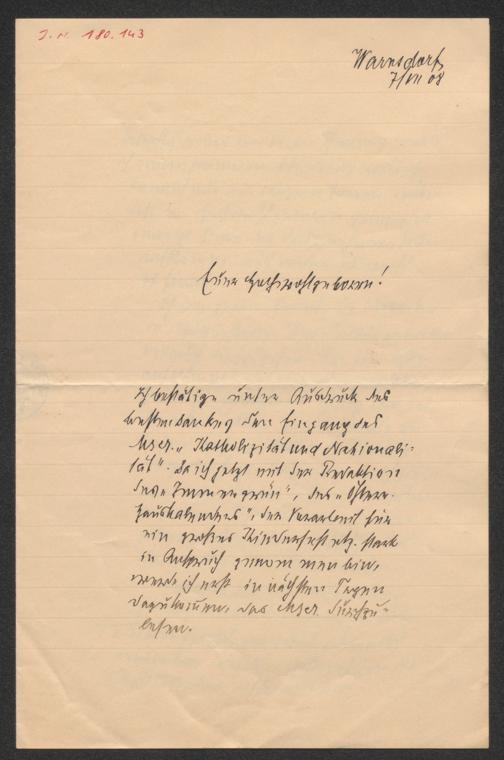 J. N. 180.143
Warnsdorf,
7/VII 08
Euer Hochwohlgeboren!
Ich bestätige unter Ausdruck des
besten Dankes den Eingang des
Mscr. „Katholizität und Nationali-
tät“. Da ich jetzt mit der Redaktion
des „Immergrün“, des „Österr.
Hauskalenders“, der Vorarbeit für
ein großes Kinderfest etz. stark
in Anspruch genommen bin,
werde ich erst in nächsten Tagen
dazukommen, das Mscr. durchzu-
lesen.